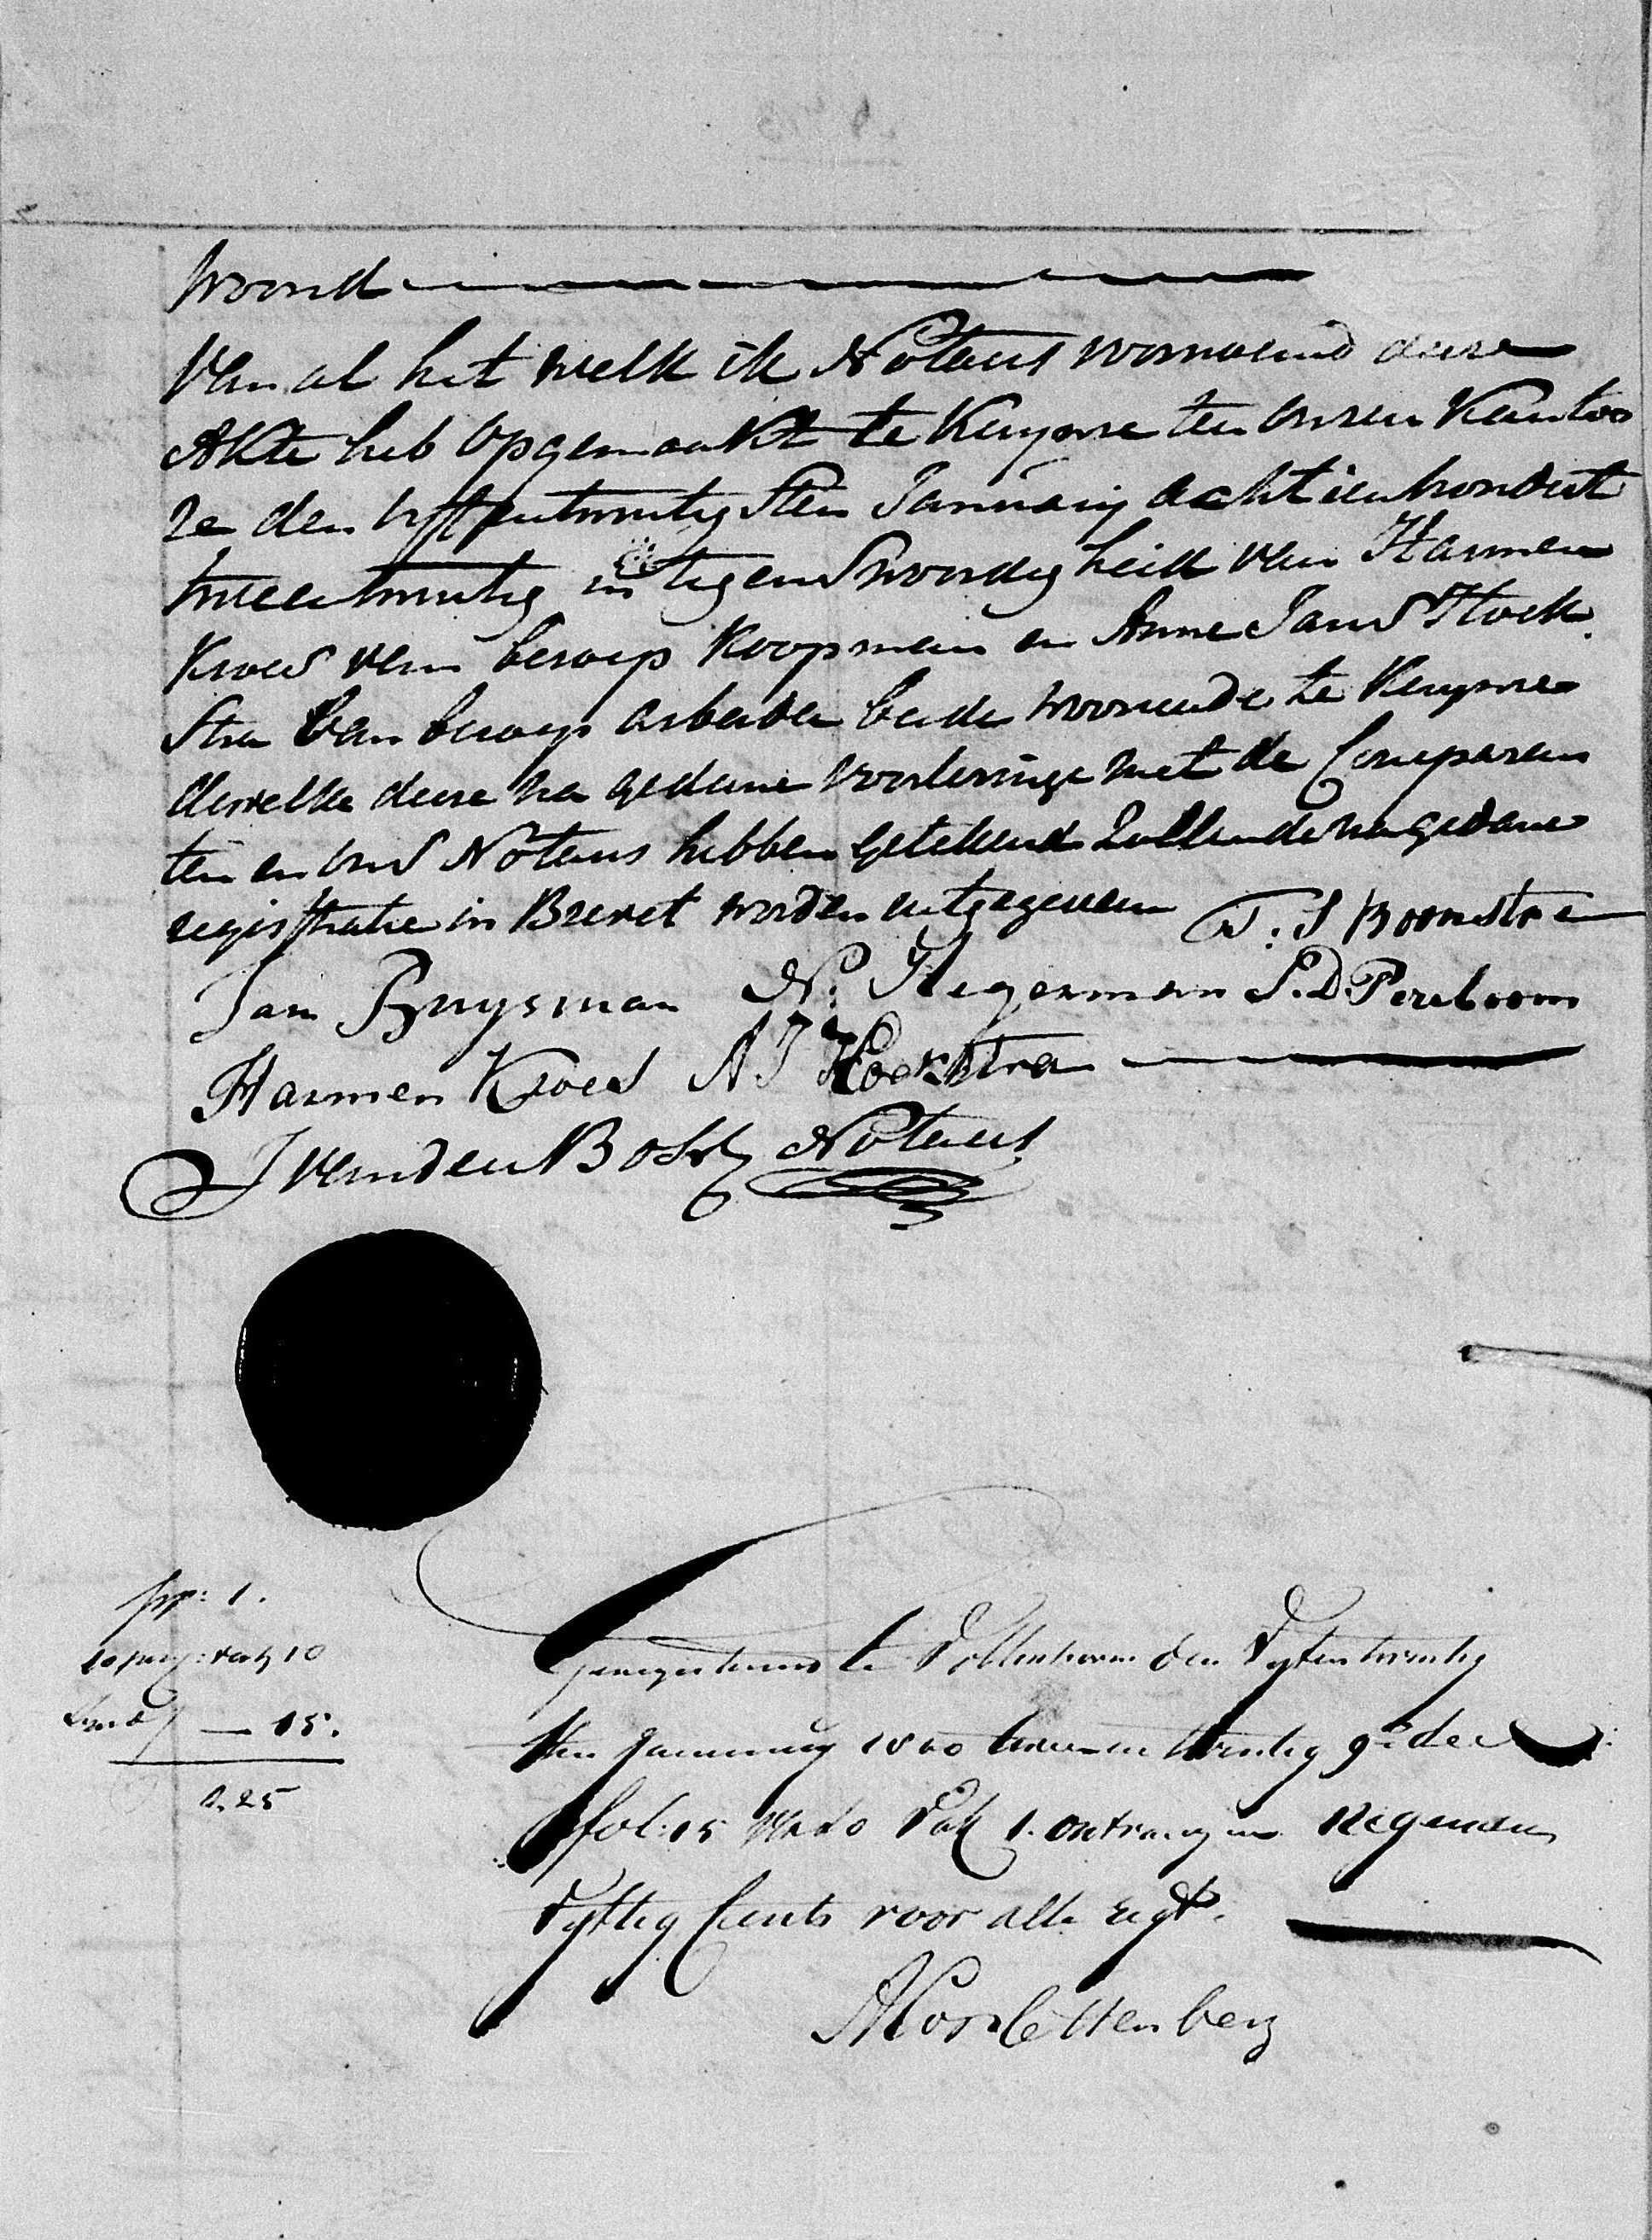 woond
Van al het welk ik Notaris voornoemd deeze
Akte heb opgemaakt te Kuynre ten onzen Kantoo
re den vyfentwintigsten January achttienhondert
tweentwintig in tegenswoordigheid van Harmen
Kroes van beroep Koopman en Anne Jans Hoek
stra van beroep arbeider beide woonende te Kuynre
dewelke deeze na gedane voorlezinge met de Comparan
ten en ons Notaris hebben getekend zullende na gedane
registratie in Brevet worden uitgegeven T: S Boomstra
Jan Pruysman N: Hegerman S. D. Pereboom
Harmen Kroes A J Hoekstra
J van den Bosch Notaris
1.
10
15.
0.25
Geregistreerd te Vollenhove den Vyfentwintig
sten January 1800 tweeen twintig 9e deel
fol: 15 Vak 1. ontvangen Negenen
Vyftig Cents voor alle regt.